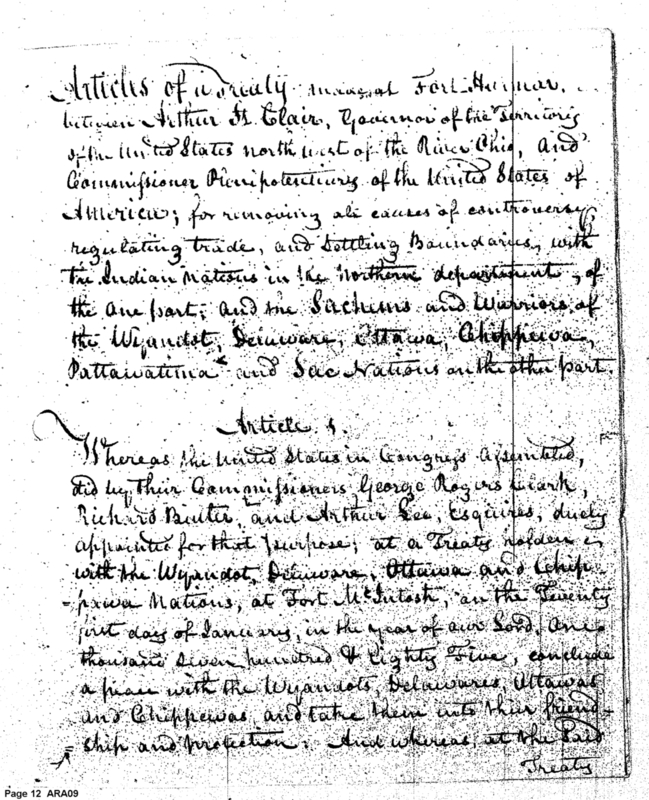 Articles of a Treaty made at Fort Harmar,
between Arthur St. Clair, Governor of the Territory
of the United States north west of the River Ohio, and
Commissioner Plenipotentiary of the United States of
America; for removing all causes of controversy,
regulating trade, and Settling Boundaries, with
the Indian Nations in the Northern department, of
the one part; and the Sachems and Warriors of
the Wyandot, Delaware, Ottawa, Chippewa,
Pattawatima and Sac Nations on the other part.
Article 1.
Whereas the United States in Congress Assembled,
did by their Commissioners George Rogers Clark,
Richard Butler, and Arthur Lee, Esquires, duely
appointed for that purpose; at a Treaty holden
with the Wyandot, Delaware, Ottawa and Chip-
-pewa Nations, at Fort McIntosh, on the Twenty
first day of January, in the year of our Lord, One
thousand Seven hundred & Eighty Five, conclude
a peace with the Wyandots, Delawares, Ottawas
and Chippewas, and take them into their friend-
-ship and protection: And whereas, at the Said
Treaty
Page 12 ARA09